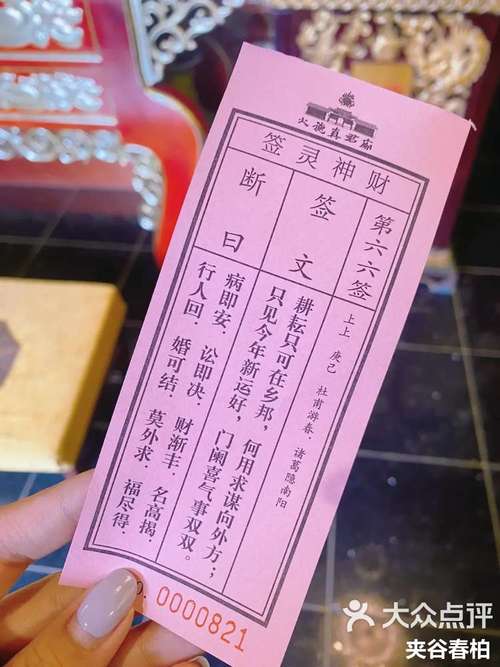 火德真君庙
财神灵签
第六六签
上上 庚己 杜甫游春、诸葛隐南阳
签文
耕耘只可在乡邦，何用求谋向外方；
只见今年新运好，门阑喜气事双双。
断曰
病即安．讼即决．财渐丰．名高揭．
行人回．婚可结．莫外求．福尽得．
0000821
大众点评
夹谷春柏